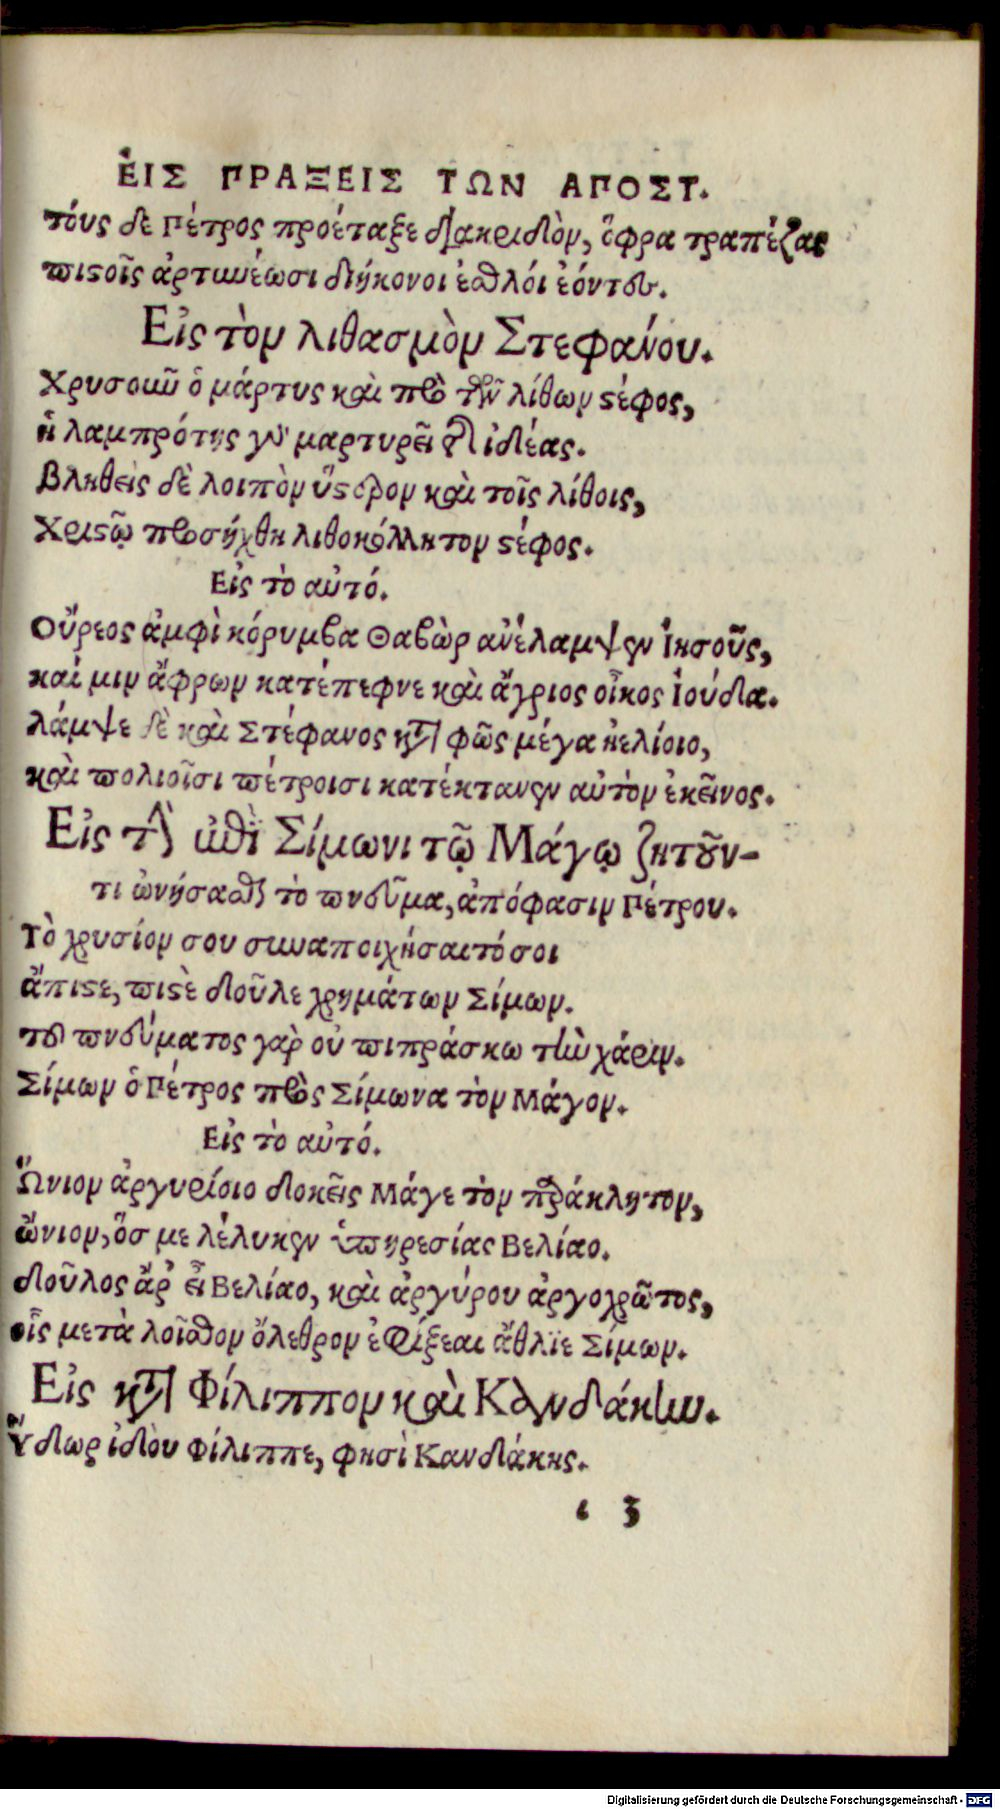 ἘΙΣ ΠΡΑΞΕΙΣ ΤΩΝ ΑΠΟΣΤ.
τόυς δε Πέτρος προέταξε διακριδὸν, ὄφρα τραπέζας
πιϛοῖς ἀρτιωέωσι διήκονοι ἐσθλόι ἐόντες.
Εἰς τὸν λιθασμὸν Στεφάνου.
Χρυσοιῦ ὁ μάρτυς καὶ πρὸ τῶν λίθων ϛέφος,
ἡ λαμπρότης γοὖ μαρτυρεῖ τῆς ἰδέας.
Βληθεὶς δὲ λοιπὸν ὕϛερον καὶ τοῖς λίθοις,
Χριϛῷ προσήχθη λιθοκόλλητον ϛέφος.
Εἰς τὸ αὐτό.
Οὔρεος ἀμφὶ κόρυμβα Θαβὼρ ἀνέλαμψεν Ἰησοῦς,
καί μιν ἄφρων κατέπεφνε καὶ ἄγριος οἶκος Ἰούδα.
λάμψε δὲ καὶ Στέφανος κατὰ φῶς μέγα ἠελίοιο,
καὶ πολιοῖσι πέτροισι κατέκτανεν αὐτὸν ἐκεῖνος.
Εἰς τὴν ἐπὶ Σίμωνι τῷ Μάγῳ ζητοῦν-
τι ὠνήσασθαι τὸ πνεῦμα, ἀπόφασιν Πέτρου.
Τὸ χρυσίον σου συναποιχήσαιτό σοι
ἄπιϛε, πιϛὲ δοῦλε χρημάτων Σίμων.
τοῦ πνεύματος γὰρ οὐ πιπράσκω τὴν χάριν.
Σίμων ὁ Πέτρος πρὸς Σίμωνα τὸν Μάγον.
Εἰς τὸ αὐτό.
Ὤνιον ἀργυρίοιο δοκεῖς Μάγε τὸν παράκλητον,
ὤνιον, ὅσ με λέλυκεν ὑπηρεσίας Βελίαο.
δοῦλος ἄρ’ εἶ Βελίαο, καὶ ἀργύρου ἀργοχρῶτος,
οἷς μετὰ λοῖσθον ὄλεθρον ἐφίξεαι ἄθλιε Σίμων.
Εἰς κατὰ Φίλιππον καὶ Κανδάκην.
Ὕδωρ ἰδὸυ Φίλιππε, φησὶ Κανδάκης.
ε 3
Digitalisierung gefördert durch die Deutsche Forschungsgemeinschaft - DFG